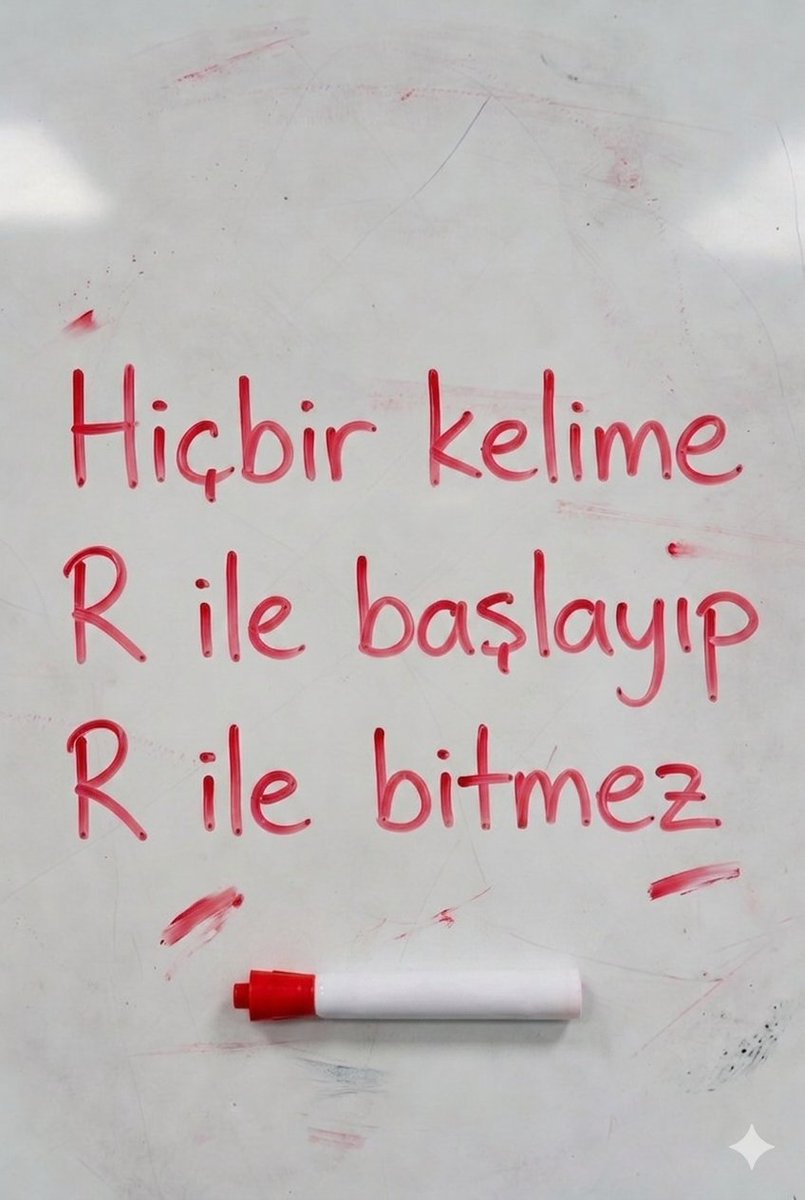 Hiçbir kelime
R ile başlayıp
R ile bitmez